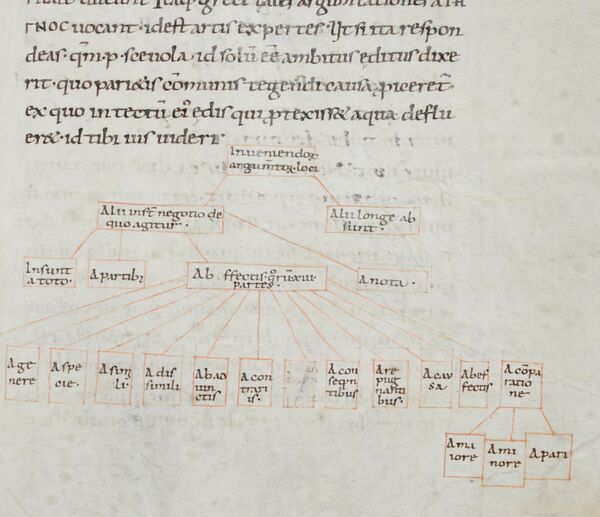 ΓΝΟC uocant · id est artis expertes · Qđ si ita respon
deas · qm̄ · p · sceuola · id solū eē ambitus ęditus dixe
rit · quo parietis cōmunis tegendi causa
ex quo in tectū eius ędis qui protexisset aqua deflu
eret · id tibi ius uideri ·
Inueniendorum
argumentorum loci
Alii inst negotio de
quo agitur ·
Alii longe ab
sunt ·
Insunt
a toto ·
A partibus
Ab effectis · quarum xiii
partes ·
A nota ·
A ge
nere
A spe
cie ·
A simi
li ·
A dis
simili
Ab ad
iun
ctis
A con
trari
is ·
A con
seqn
tibus
A re
pug
nanti
bus ·
A cau
sa
Ab ef
fectis
A cōpa
ratio
ne
A ma
iore
A mi
nore
A pari